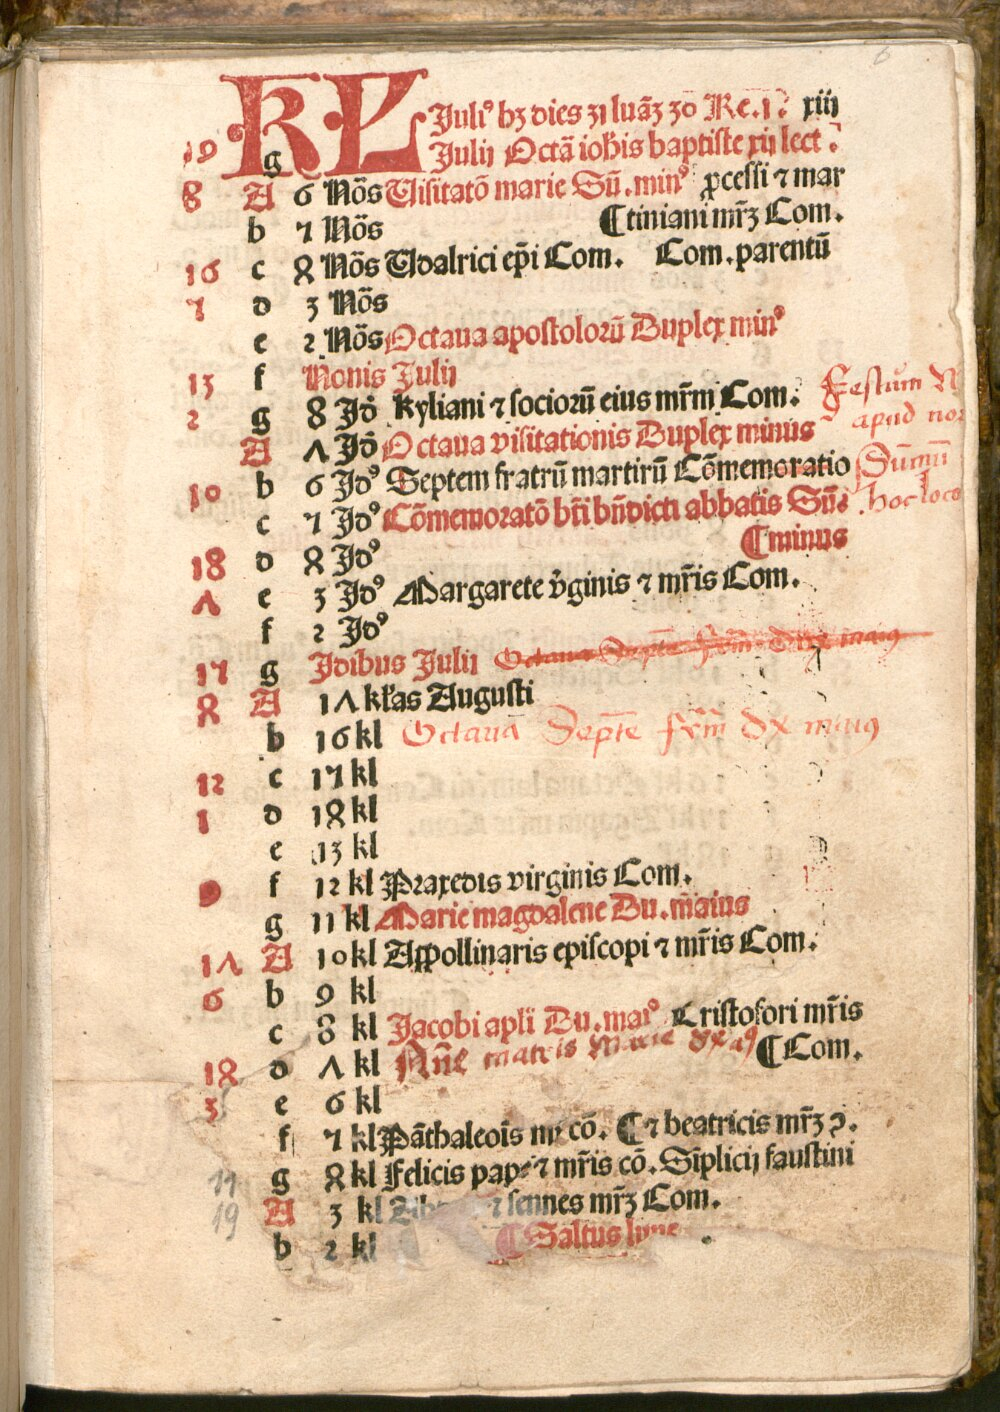 6
KL Juliꝰ hꝫ dies 31 luãꝫ 30 Re. xiii
19 g Julij Octã ioh̃is baptiste xij lect.
8 A 6 Nõs Uisitatõ marie Sũ. minꝰ ꝓcessi ⁊ mar
b ⁊ Nõs ⸿tiniani mr̃ꝫ Com.
16 c 8 Nõs Udalrici ep̃i Com. Com. parentũ
⁊ d 3 Nõs
e 2 Nõs Octaua apostolorũ Duplex minꝰ
13 f Nonis Julij
2 g 8 Jdꝰ Kyliani ⁊ sociorũ eius mr̃m Com. Festum
A Λ Jdꝰ Octaua visitationis Duplex minus apud
10 b 6 Jdꝰ Septem fratrũ martirũ Cõmemoratio Sũmũ
c ⁊ Jdꝰ Cõmemoratõ bt̃i bñdicti abbatis Sũ. hoc loco
⸿minus
18 d 8 Jdꝰ
Λ e 3 Jdꝰ Margarete ṽginis ⁊ mr̃is Com.
f 2 Jdꝰ
1⁊ g Jdibus Julij Octaua Septẽ fr̃m dx maius
8 A 1Λ kl̃as Augusti
b 16 kl Octaua Septẽ fr̃m dx maiꝰ
12 c 1⁊ kl
1 d 18 kl
e 13 kl
9 f 12 kl Praxedis virginis Com.
g 11 kl Marie magdalene Du. maius
1Λ A 10 kl Appollinaris episcopi ⁊ mr̃is Com.
6 b 9 kl
c 8 kl Jacobi apl̃i Du. maiꝰ Cristofori mr̃is
18 d Λ kl Añe matris Marie dx ⸿Com.
3 e 6 kl
f ⁊ kl Pãthaleoĩs cõ. ⸿⁊ beatricis mr̃ꝫ
11 g 8 kl Felicis pape ⁊ mr̃is cõ. Sĩplicij faustini
19 A 3 kl ⁊ sennes mr̃ꝫ Com.
b 2 kl ⸿Saltus lune